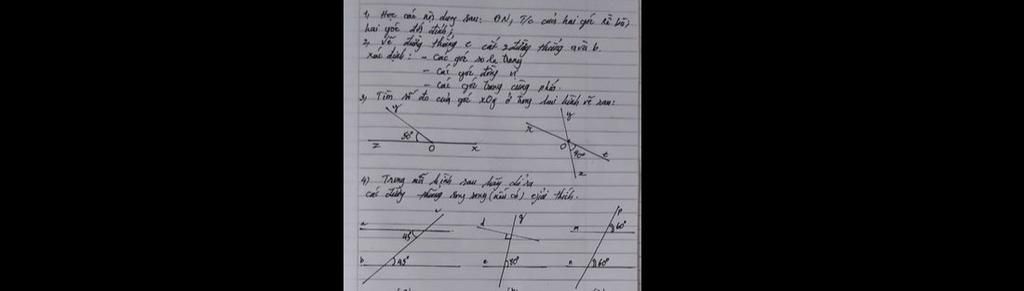 1, Học các nội dung sau: ĐN, T/c của hai góc kề bù,
hai góc đối đỉnh;
2, Vẽ đường thẳng c cắt 2 đường thẳng a và b.
xác định: - các góc so le trong
- các góc đồng vị
- các góc trong cùng phía.
3, Tìm số đo của góc xOy ở từng hình vẽ sau:
y
z O x
x y
O 40° t
z
4) Trong mỗi hình sau hãy chỉ ra
các đường thẳng song song (nếu có) giải thích.
a 45°
b 45°
d
m 60°
n 60°